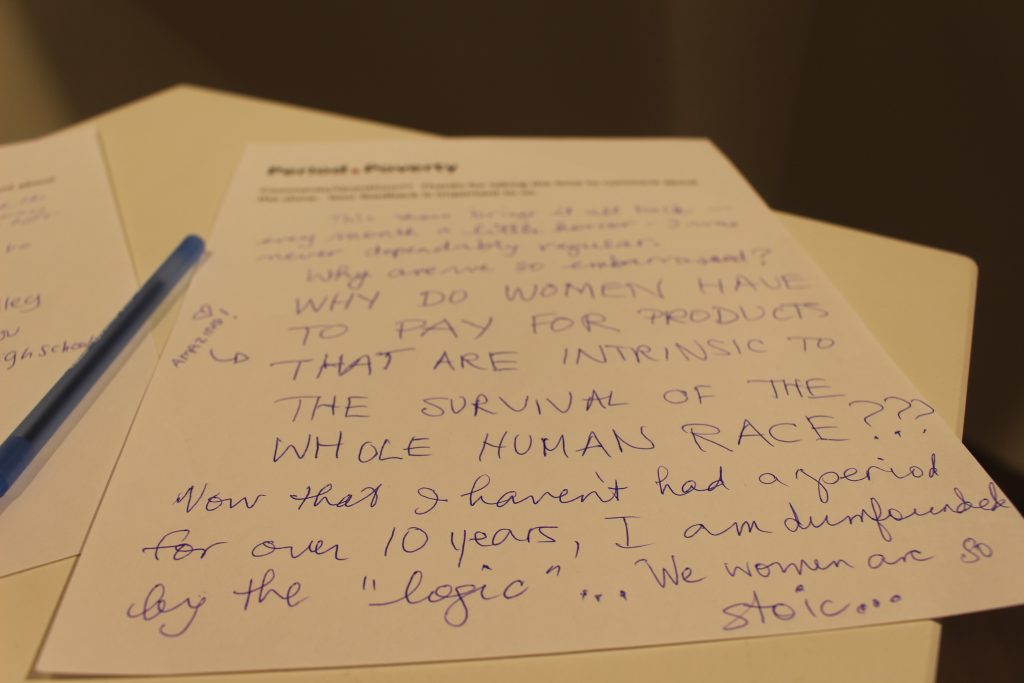 Period.Poverty
Comments/Questions?? Thanks for taking the time to comment about
the show. Your feedback is important to us.
This show brings it all back —
every month a little horror - I was
never dependably regular.
Why are we so embarrassed?
WHY DO WOMEN HAVE
TO PAY FOR PRODUCTS
THAT ARE INTRINSIC TO
THE SURVIVAL OF THE
WHOLE HUMAN RACE???
Now that I haven't had a period
for over 10 years, I am dumfounded
by the "logic"... We women are so
stoic...
♡
AMAZING!
about
ley
ghschool